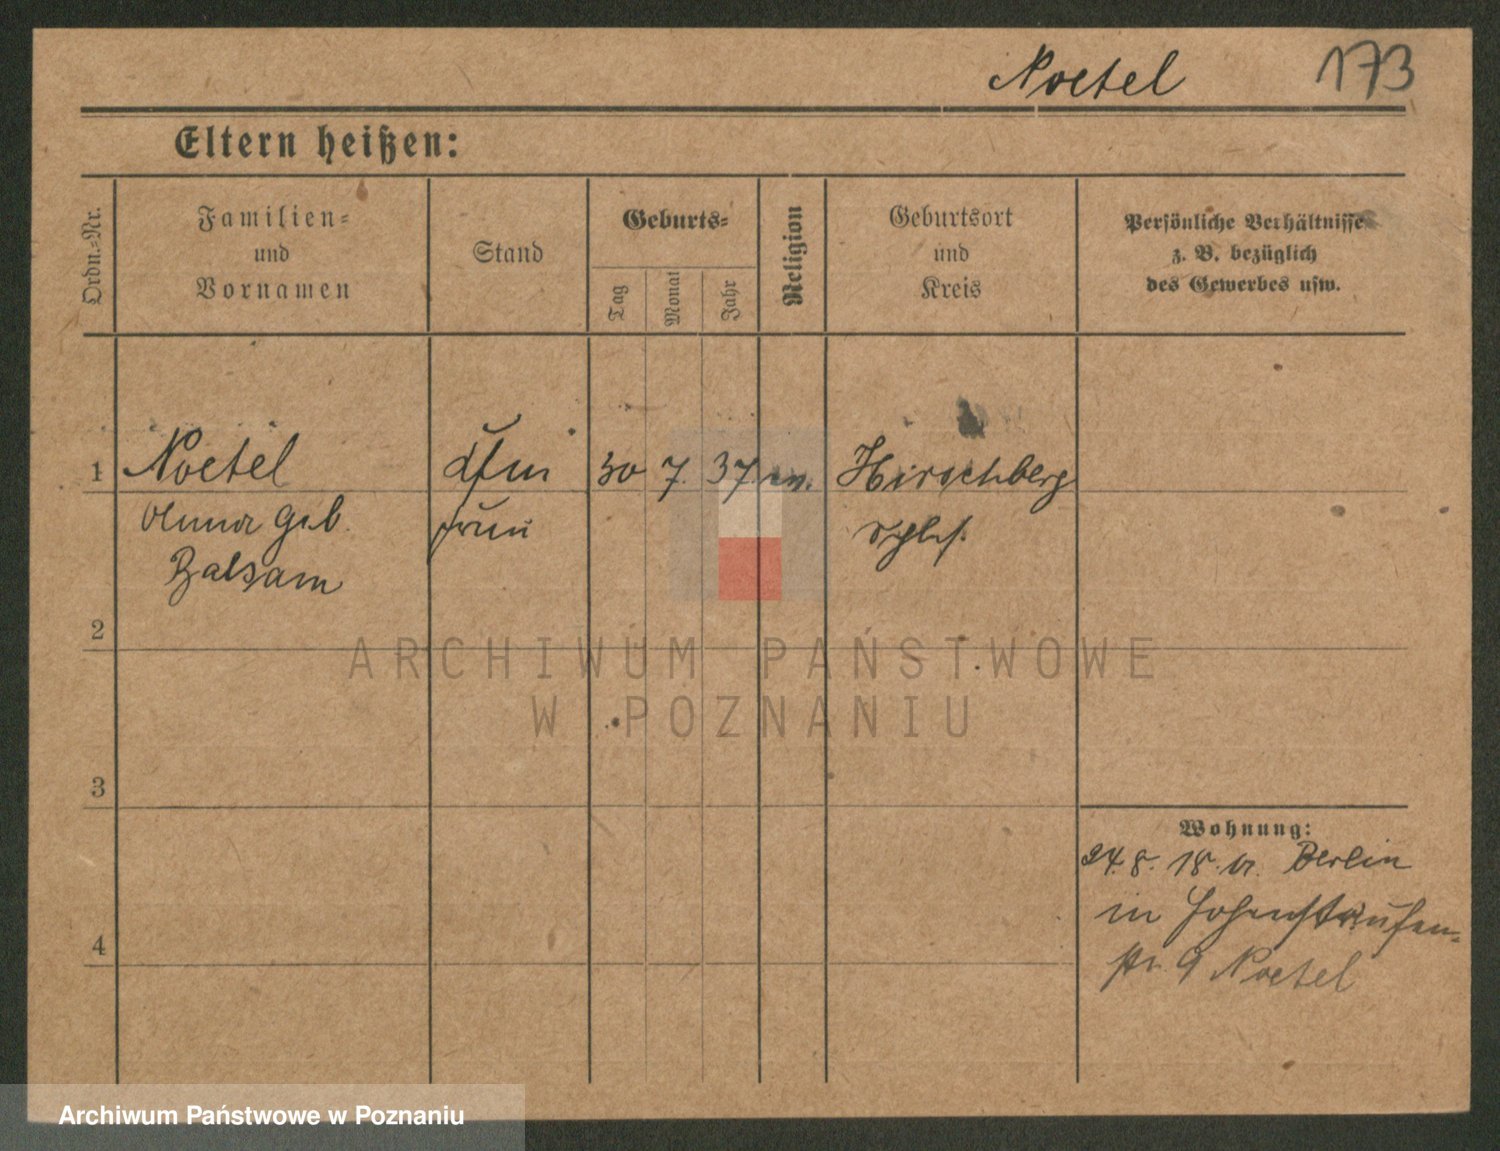 Noetel 173
Eltern heißen:
Ordn.=Nr.
Familien=
und
Vornamen
Stand
Geburts=
Tag
Monat
Jahr
Religion
Geburtsort
und
Kreis
Persönliche Verhältnisse
z. B. bezüglich
des Gewerbes usw.
1 Noetel 30 7. 37. ev. Hirschberg
Anna geb. frau Schles.
Balsam
2
3
4
Wohnung:
24. 8. 18. a. Berlin
in Hohenstaufen=
str. 9 Noetel
ARCHIWUM PAŃSTWOWE
W POZNANIU
Archiwum Państwowe w Poznaniu